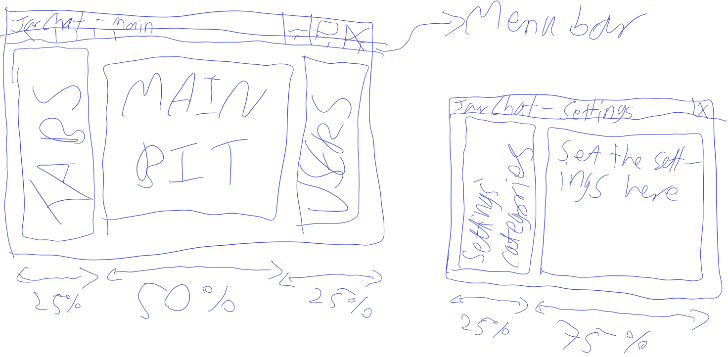 JarChat - main
- □ X
Menu bar
TABS
MAIN
BIT
USERS
25%
50%
25%
JarChat - Settings
X
Settings
categories
Set the sett-
ings here
25%
75%